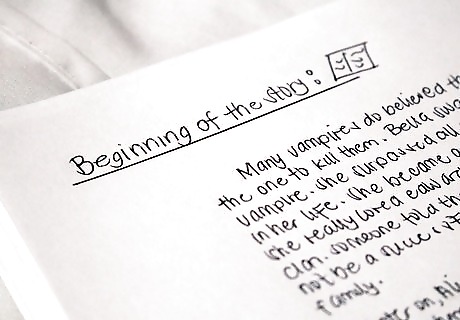 Beginning of the story:
Many vampires do believed th
the one to kill them. Bella swa
vampire. she surpaured all
in her life. she became a
she really loved edward
clan. someone told th
not be a nice
family.